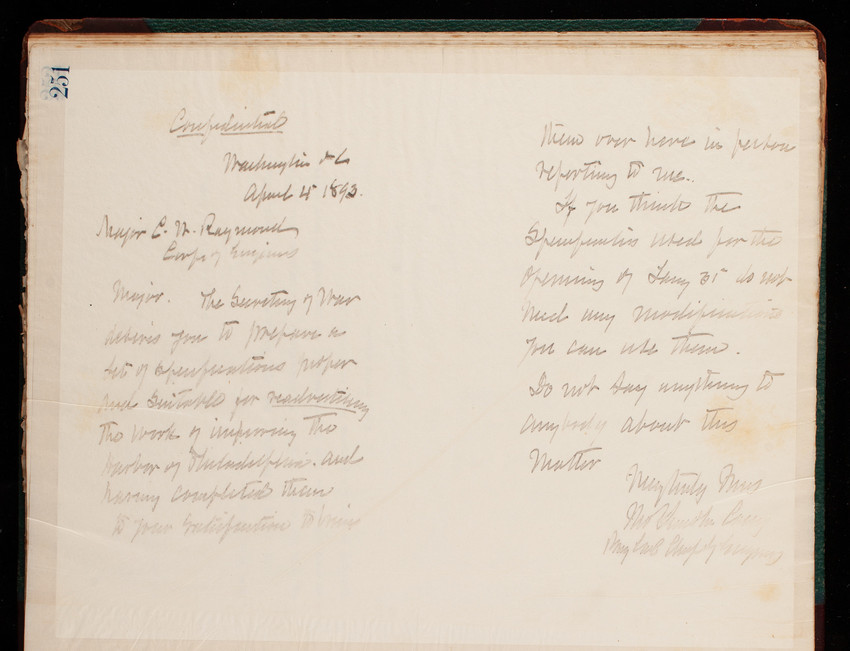 251
Confidential
Washington D C
April 4 1893.
Major C. W. Raymond
Corps of Engineers
Major. The Secretary of War
desires you to prepare a
set of specifications proper
and suitable for readvertising
the work of improving the
harbor of Philadelphia. and
having completed them
to your satisfaction to bring
them over here in person
reporting to me.
If you think the
Specifications used for the
opening of Jany 31 do not
need any modifications
you can use them.
Do not say anything to
anybody about this
matter
Very truly Yours
Thos Lincoln Casey
Brig Genl Chief of Engineers